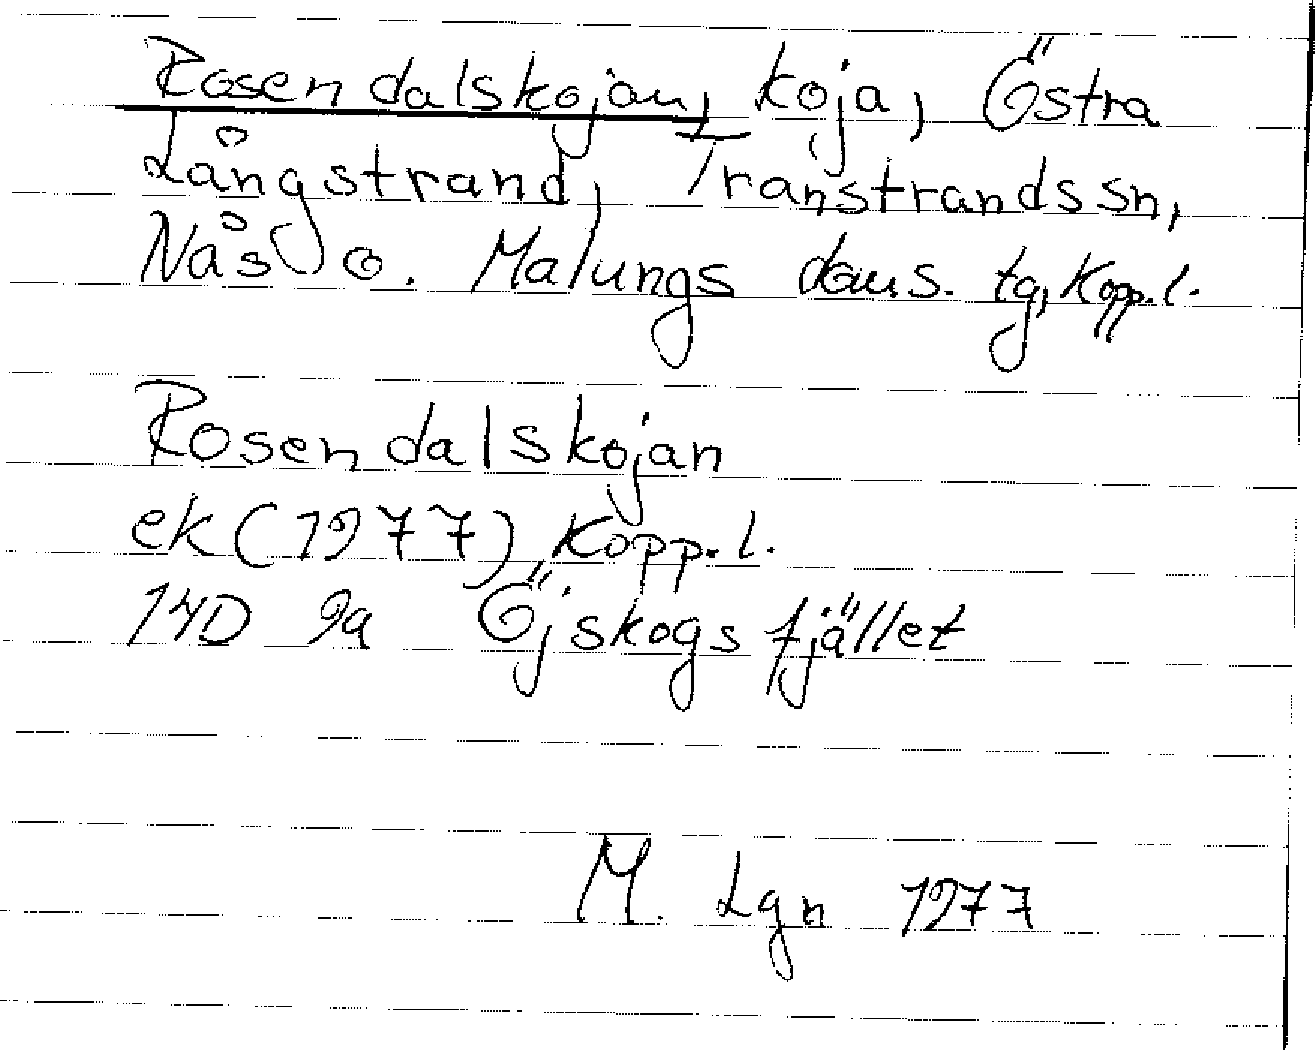 Rosendalskojan, koja, Östra
Långstrand, Transtrandssn,
Nås o. Malungs doms. tg, Kopp. l.
Rosendalskojan
ek (1977) Kopp. l.
14D 9a Öjskogsfjället
M. Lgn 1977